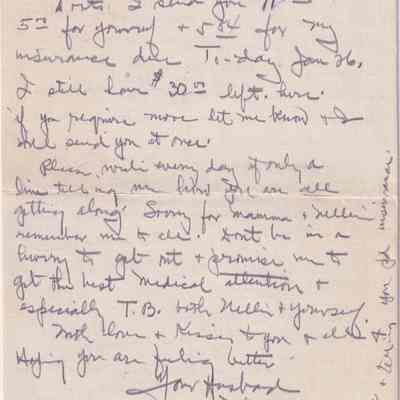 I send you
5⁰⁰ for yourself + 5 84 for my
insurance due To-day Jan 26.
I still have $30⁰⁰ left here.
if you require more let me know + I
will send you at once.
Please write every day if only a
line telling me how you are all
getting along. Sorry for mamma + Nellie
remember me to all. Dont be in a
hurry to get out + promise me to
get the best medical attention +
especially T.B. both Nellie + yourself.
With love + Kisses to you + all. +
Hoping you are feeling better
Your Husband
+ telling you of insurance.